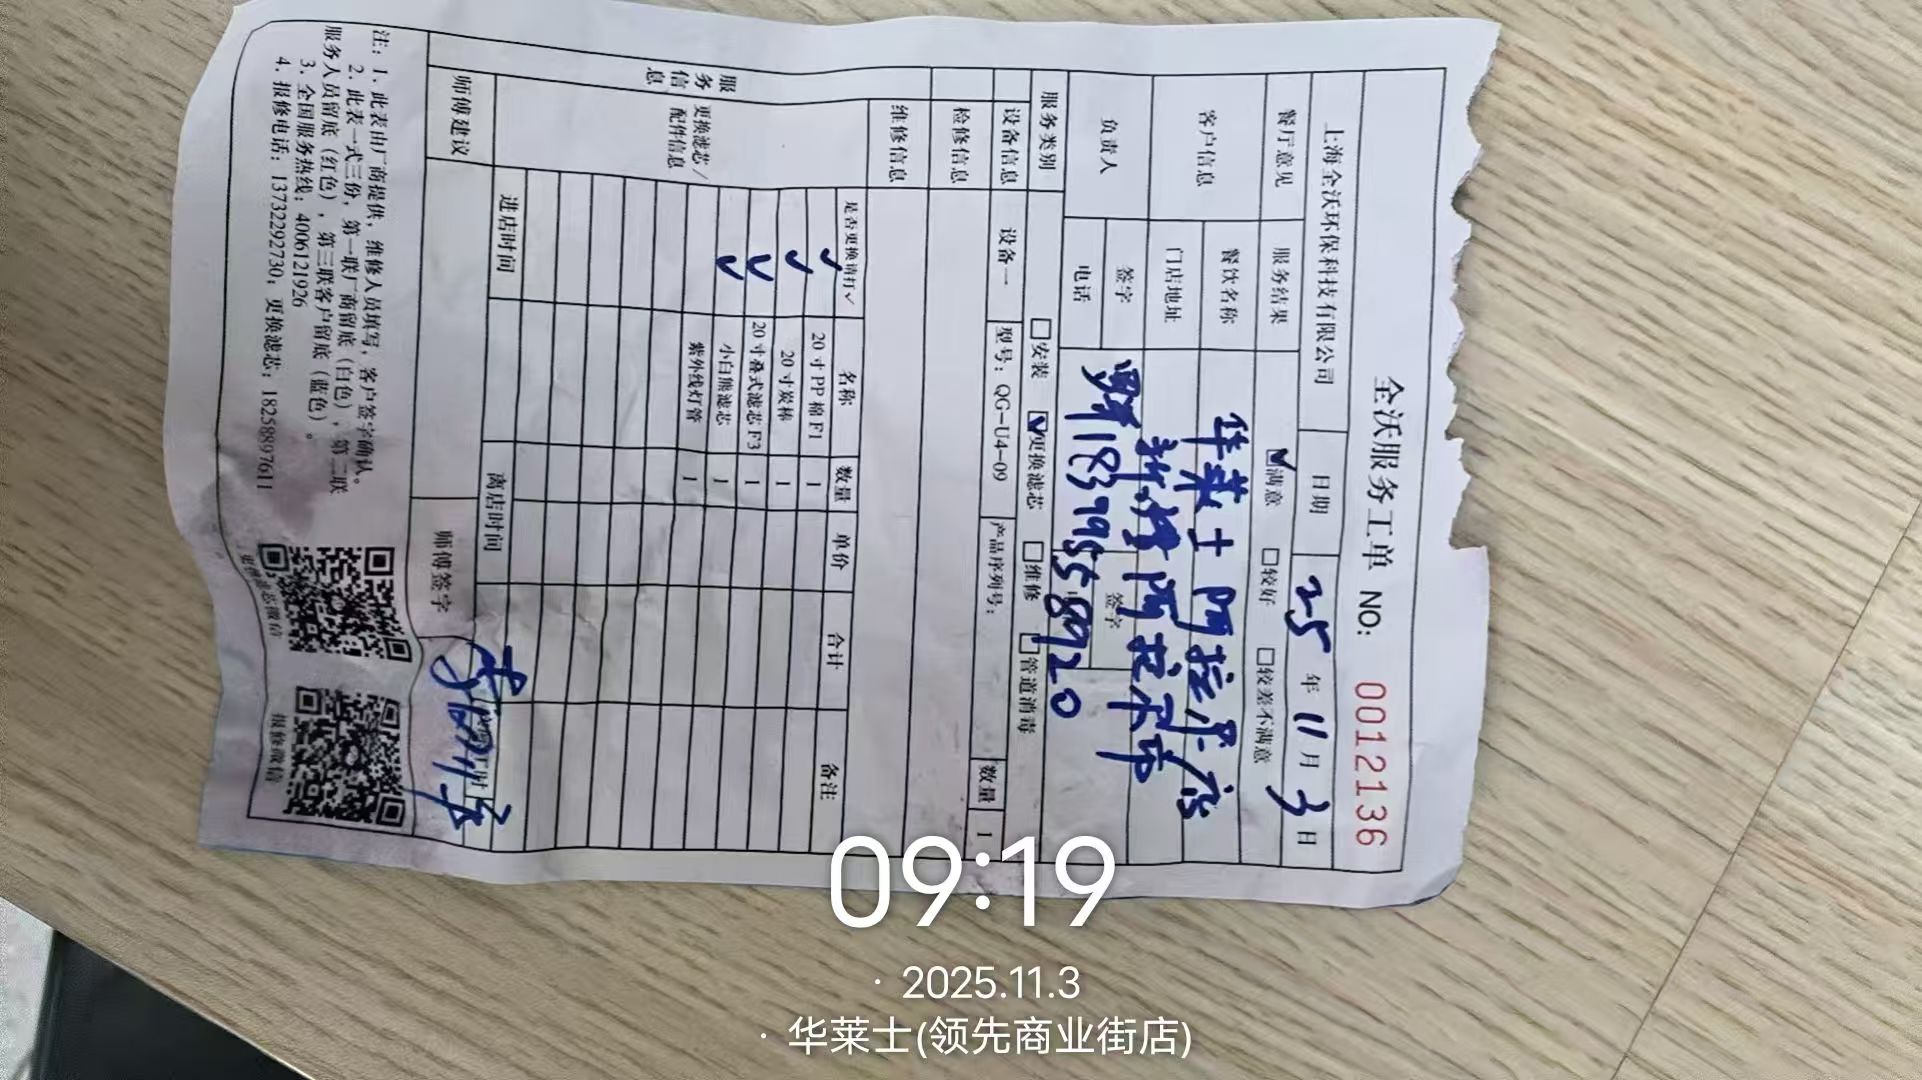 全沃服务工单 NO: 0012136
上海全沃环保科技有限公司 日期 25年11月3日
餐厅意见 服务结果 ☑满意 □较好 □较差不满意
客户信息 餐饮名称 华莱士阿拉尔店
门店地址 新疆阿拉尔市
负责人 签字 签字
电话 18399558920
服务类别 □安装 ☑更换滤芯 □维修 □管道消毒
服务信息
设备信息 设备一 型号:QG-U4-09 产品序列号: 数量 1
检修信息
维修信息
更换滤芯/配件信息
是否更换请打✓ 名称 数量 单价 合计 备注
✓ 20寸PP棉F1 1
✓ 20寸炭棒 1
✓ 20寸叠式滤芯F3 1
✓ 小白熊滤芯 1
紫外线灯管 1
进店时间 离店时间
师傅建议 师傅签字
注:1、此表由厂商提供,维修人员填写,客户签字确认。
2、此表一式三份,第一联厂商留底(白色),第二联
服务人员留底(红色),第三联客户留底(蓝色)。
3、全国服务热线:4006121926
4、报修电话:13732292730;更换滤芯:18258897611
更换滤芯微信 报修微信
09:19
· 2025.11.3
· 华莱士(领先商业街店)